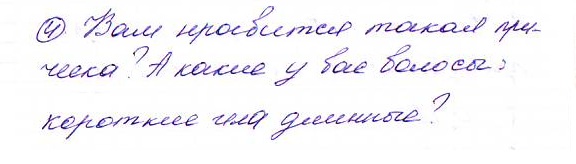 ④ Вам нравится такая при-
ческа? А какие у вас волосы:
короткие или длинные?